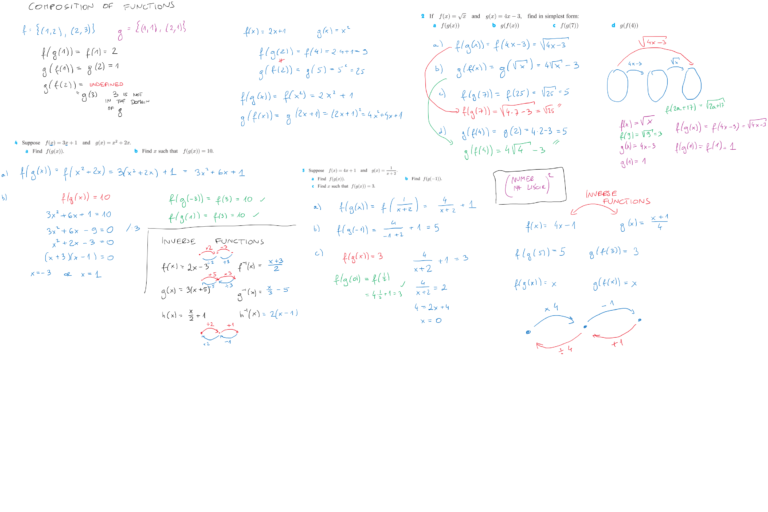 COMPOSITION OF FUNCTIONS
f = {(1,2), (2,3)}
g = {(0,1), (2,1)}
f(g(1)) = f(1) = 2
g(f(1)) = g(2) = 1
g(f(2)) = UNDEFINED
g(3) 3 IS NOT
IN THE DOMAIN
OF g
f(x) = 2x+1 g(x) = x²
f(g(2)) = f(4) = 2·4+1 = 9
g(f(2)) = g(5) = 5² = 25
f(g(x)) = f(x²) = 2x² + 1
g(f(x)) = g(2x+1) = (2x+1)² = 4x²+4x+1
2 If f(x) = √x and g(x) = 4x − 3, find in simplest form:
a f(g(x)) b g(f(x)) c f(g(7)) d g(f(4))
a) f(g(x)) = f(4x-3) = √4x-3
b) g(f(x)) = g(√x) = 4√x - 3
c) f(g(7)) = f(25) = √25 = 5
f(g(7)) = √4·7-3 = √25
d) g(f(4)) = g(2) = 4·2-3 = 5
g(f(4)) = 4√4 - 3
√4x-3
4x-3
√x
f(x) = √x
g(x) = 4x-3
f(g(x)) = f(4x-3) = √4x-3
g(x) = 1
f(g(x)) = f(1) = 1
4 Suppose f(x) = 3x + 1 and g(x) = x² + 2x.
a Find f(g(x)). b Find x such that f(g(x)) = 10.
a) f(g(x)) = f(x²+2x) = 3(x²+2x) + 1 = 3x² + 6x + 1
b) f(g(x)) = 10
3x² + 6x + 1 = 10
3x² + 6x - 9 = 0 /3
x² + 2x - 3 = 0
(x+3)(x-1) = 0
x = -3 or x = 1
f(g(-3)) = f(3) = 10 ✓
f(g(1)) = f(3) = 10 ✓
INVERSE FUNCTIONS
f(x) = 2x - 3 f⁻¹(x) = (x+3)/2
g(x) = 3(x+5) g⁻¹(x) = x/3 - 5
h(x) = x/2 + 1 h⁻¹(x) = 2(x-1)
5 Suppose f(x) = 4x + 1 and g(x) = 1/(x+2).
a Find f(g(x)). b Find f(g(−1)).
c Find x such that f(g(x)) = 3.
a) f(g(x)) = f(1/(x+2)) = 4/(x+2) + 1
b) f(g(-1)) = 4/(-1+2) + 1 = 5
c) f(g(x)) = 3
4/(x+2) + 1 = 3
f(g(0)) = f(1/2) ✓
= 4·1/2+1 = 3
4/(x+2) = 2
4 = 2x+4
x = 0
INVERSE
FUNCTIONS
f(x) = 4x-1 g(x) = (x+1)/4
f(g(5)) = 5 g(f(3)) = 3
f(g(x)) = x g(f(x)) = x
× 4
-1
÷ 4
+1